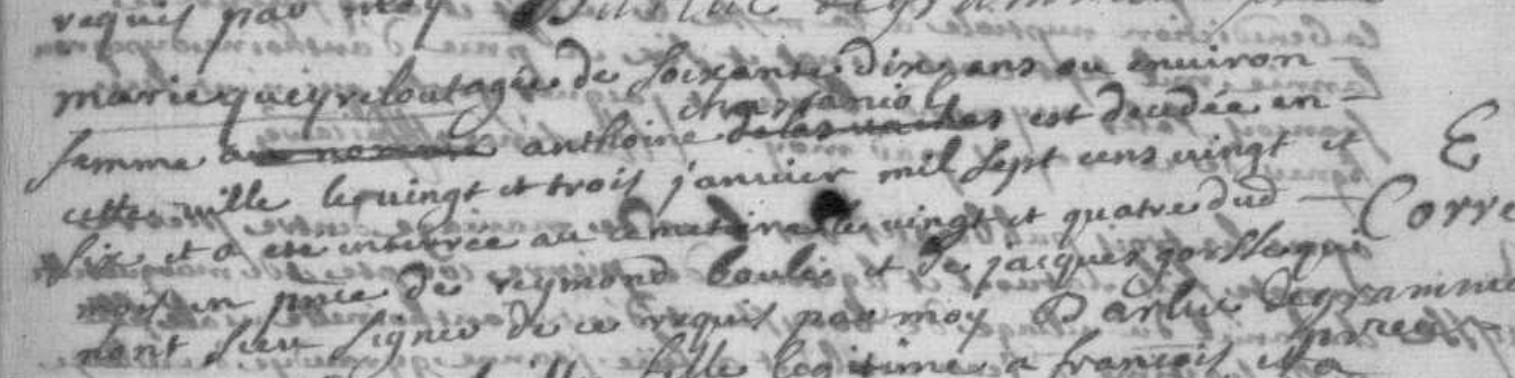 requis par moy
marie queyrelout agée de soixante dix ans ou environ
chassaniol
femme anthoine est decedée en
cette ville le vingt et trois janvier mil sept cens vingt et
six et a ete enterrée au cemetaire le vingt et quatre dud
E
Corre
mois en pnce de reymond et de jacques qui
nont sceu signer de ce requis par moy Barlue degramine
pree
fille legitime a francois et a